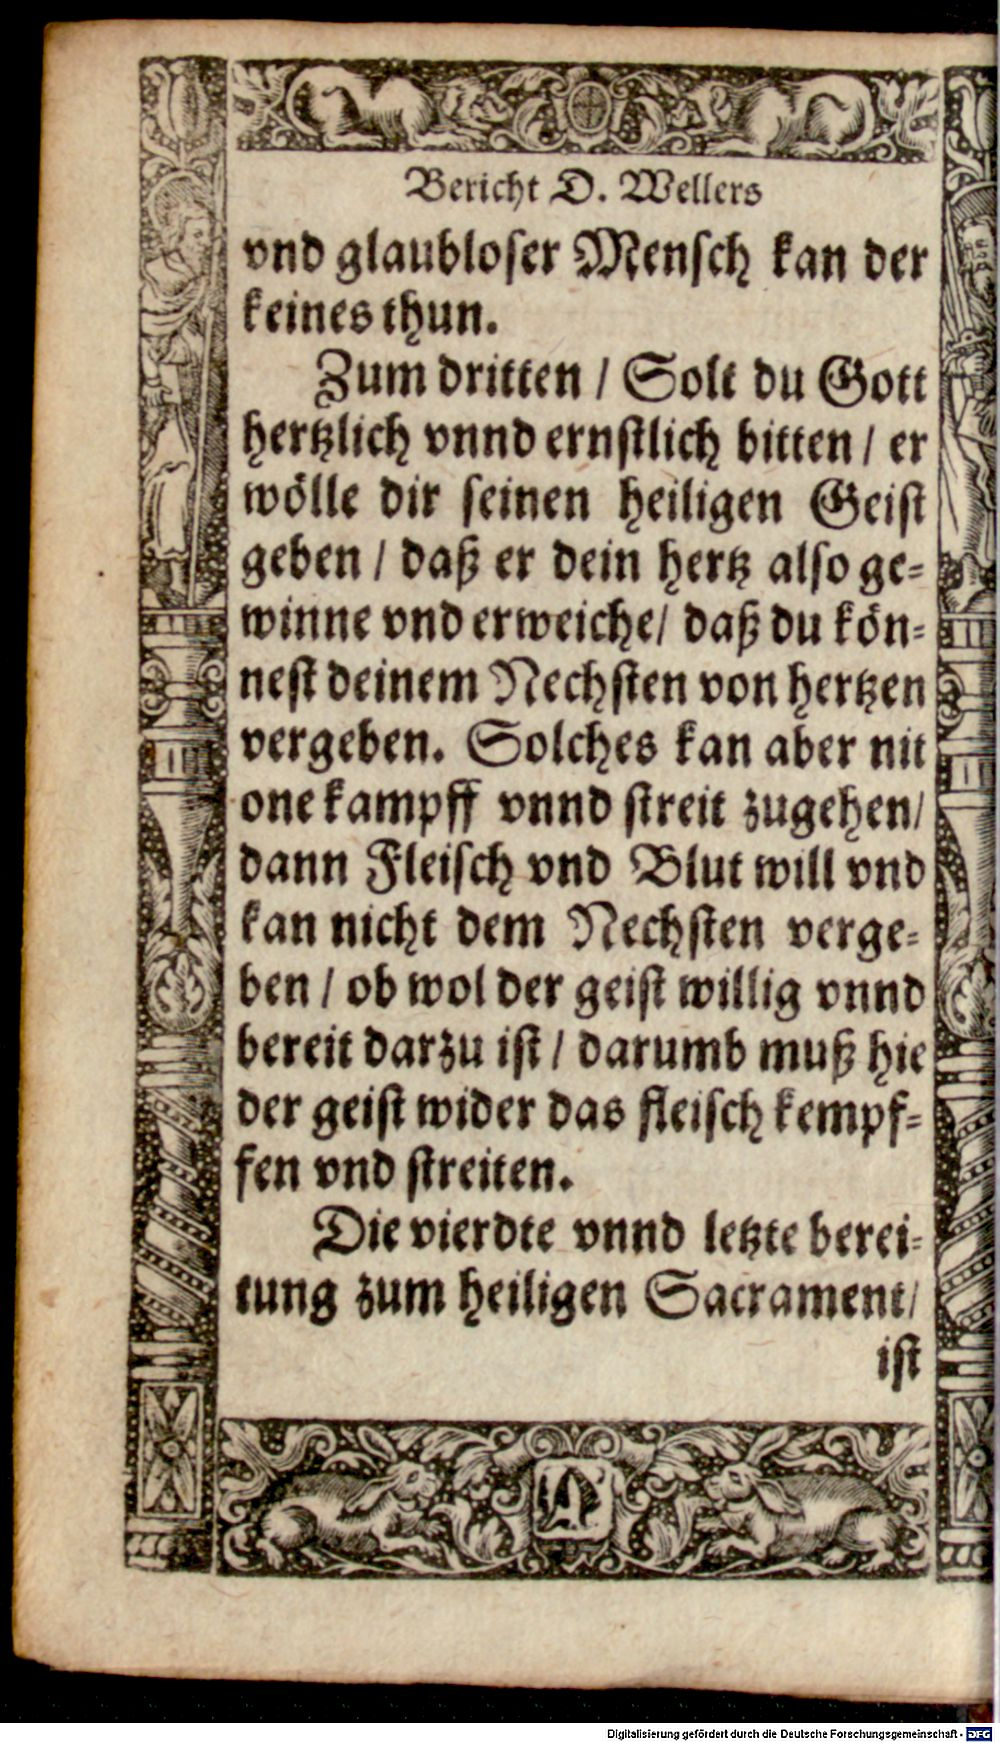 Bericht D. Wellers
vnd glaubloser Mensch kan der
keines thun.
Zum dritten / Solt du Gott
hertzlich vnnd ernstlich bitten / er
wölle dir seinen heiligen Geist
geben / daß er dein hertz also ge-
winne vnd erweiche / daß du kön-
nest deinem Nechsten von hertzen
vergeben. Solches kan aber nit
one kampff vnnd streit zugehen /
dann Fleisch vnd Blut will vnd
kan nicht dem Nechsten verge-
ben / ob wol der geist willig vnnd
bereit darzu ist / darumb muß hie
der geist wider das fleisch kempf-
fen vnd streiten.
Die vierdte vnnd letzte berei-
tung zum heiligen Sacrament /
ist
Digitalisierung gefördert durch die Deutsche Forschungsgemeinschaft - DFG